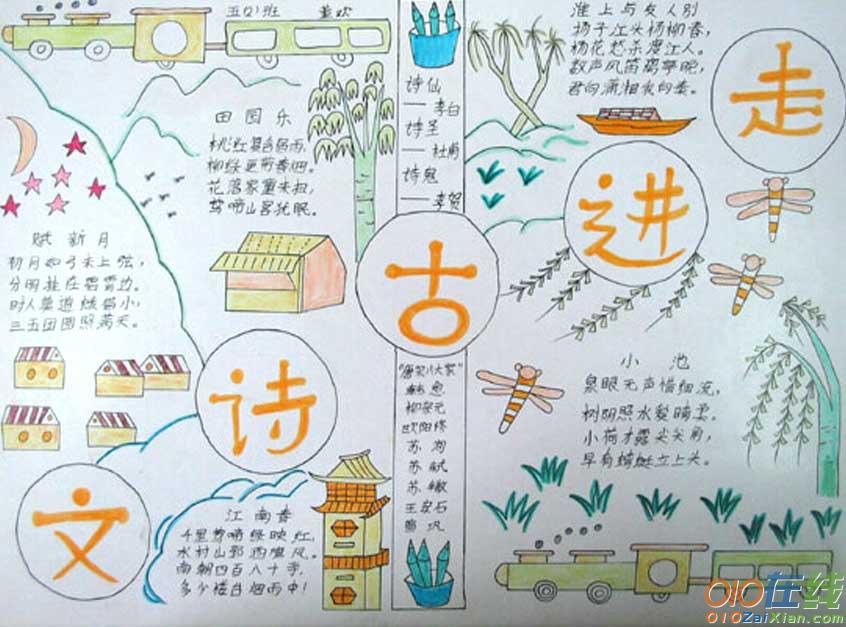 走
进
古
诗
文
五(2)班
淮上与友人别
扬子江头杨柳春，
杨花愁杀渡江人。
数声风笛离亭晚，
君向潇湘我向秦。
诗仙
——李白
诗圣
——杜甫
诗鬼
——李贺
田园乐
桃红复含宿雨，
柳绿更带春烟。
花落家童未扫，
莺啼山客犹眠。
赋新月
初月如弓未上弦，
分明挂在碧霄边。
时人莫道蛾眉小，
三五团圆照满天。
"唐宋八大家"
韩愈
柳宗元
欧阳修
苏洵
苏轼
苏辙
王安石
曾巩
小池
泉眼无声惜细流，
树阴照水爱晴柔。
小荷才露尖尖角，
早有蜻蜓立上头。
江南春
千里莺啼绿映红，
水村山郭酒旗风。
南朝四百八十寺，
多少楼台烟雨中！
010在线
010ZaiXian.com